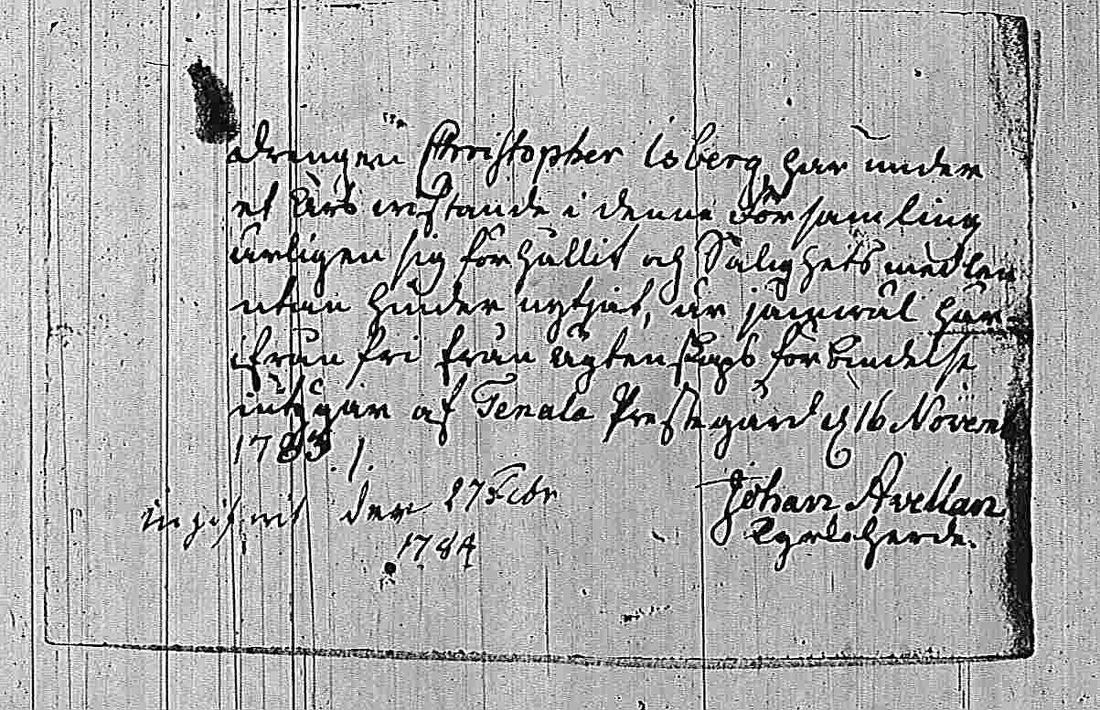 Drengen Christopher Isberg har under
et Års vistande i denne Församling
ärligen sig förhållit och Salighets medlen
utan hinder nytjat, är jämväl här-
ifrån fri från ägtenskaps förbindelse
intygar af Tenala Prestegård d 16 Novem
1783.
Johan Avellan
Kyrkoherde.
den 27 Febr
1784